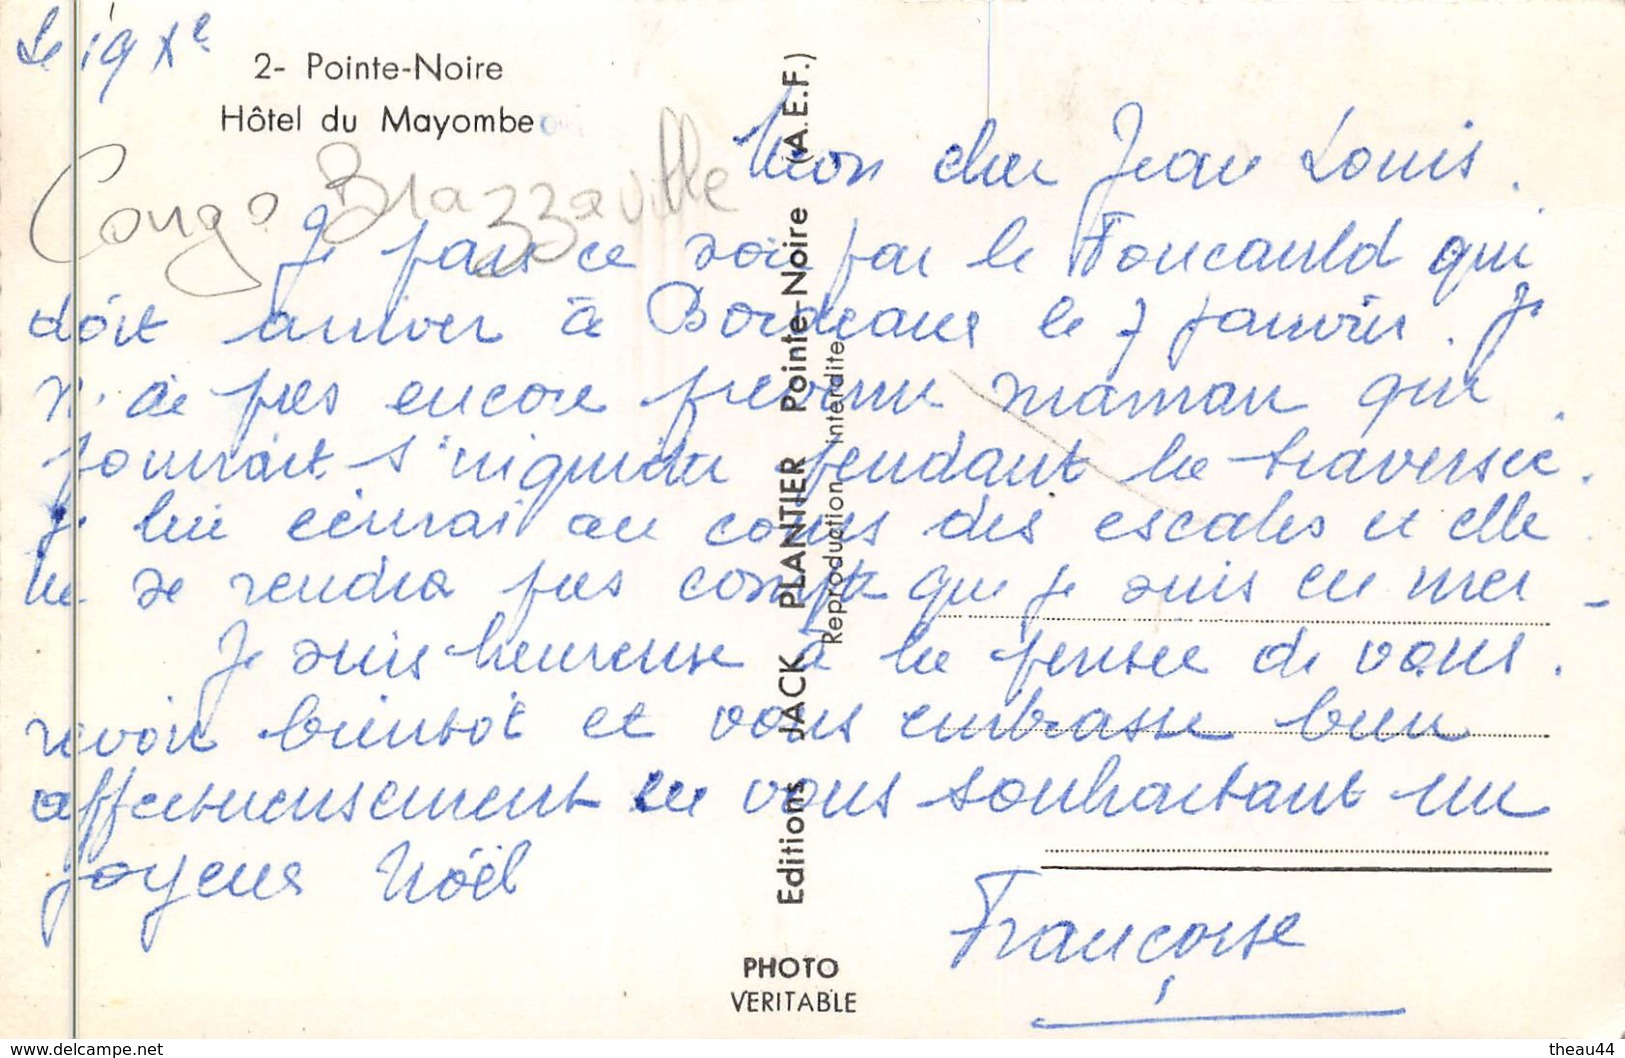 Le 19 Xe
2- Pointe-Noire
Hôtel du Mayombe
Congo Brazzaville
Mon cher Jean Louis.
Je pars ce soir par le Foucauld qui
doit arriver à Bordeaux le 7 janvier. Je
n'ai pas encore prévenu maman qui
pourrait s'inquiéter pendant la traversée.
Je lui écrirai au cours des escales et elle
ne se rendra pas compte que je suis en mer -
Je suis heureuse à la pensée de vous
revoir bientôt et vous embrasse bien
affectueusement en vous souhaitant un
joyeux Noël
Françoise
Editions JACK PLANTIER Pointe-Noire (A.E.F.)
Reproduction interdite
PHOTO
VERITABLE
www.delcampe.net
theau44